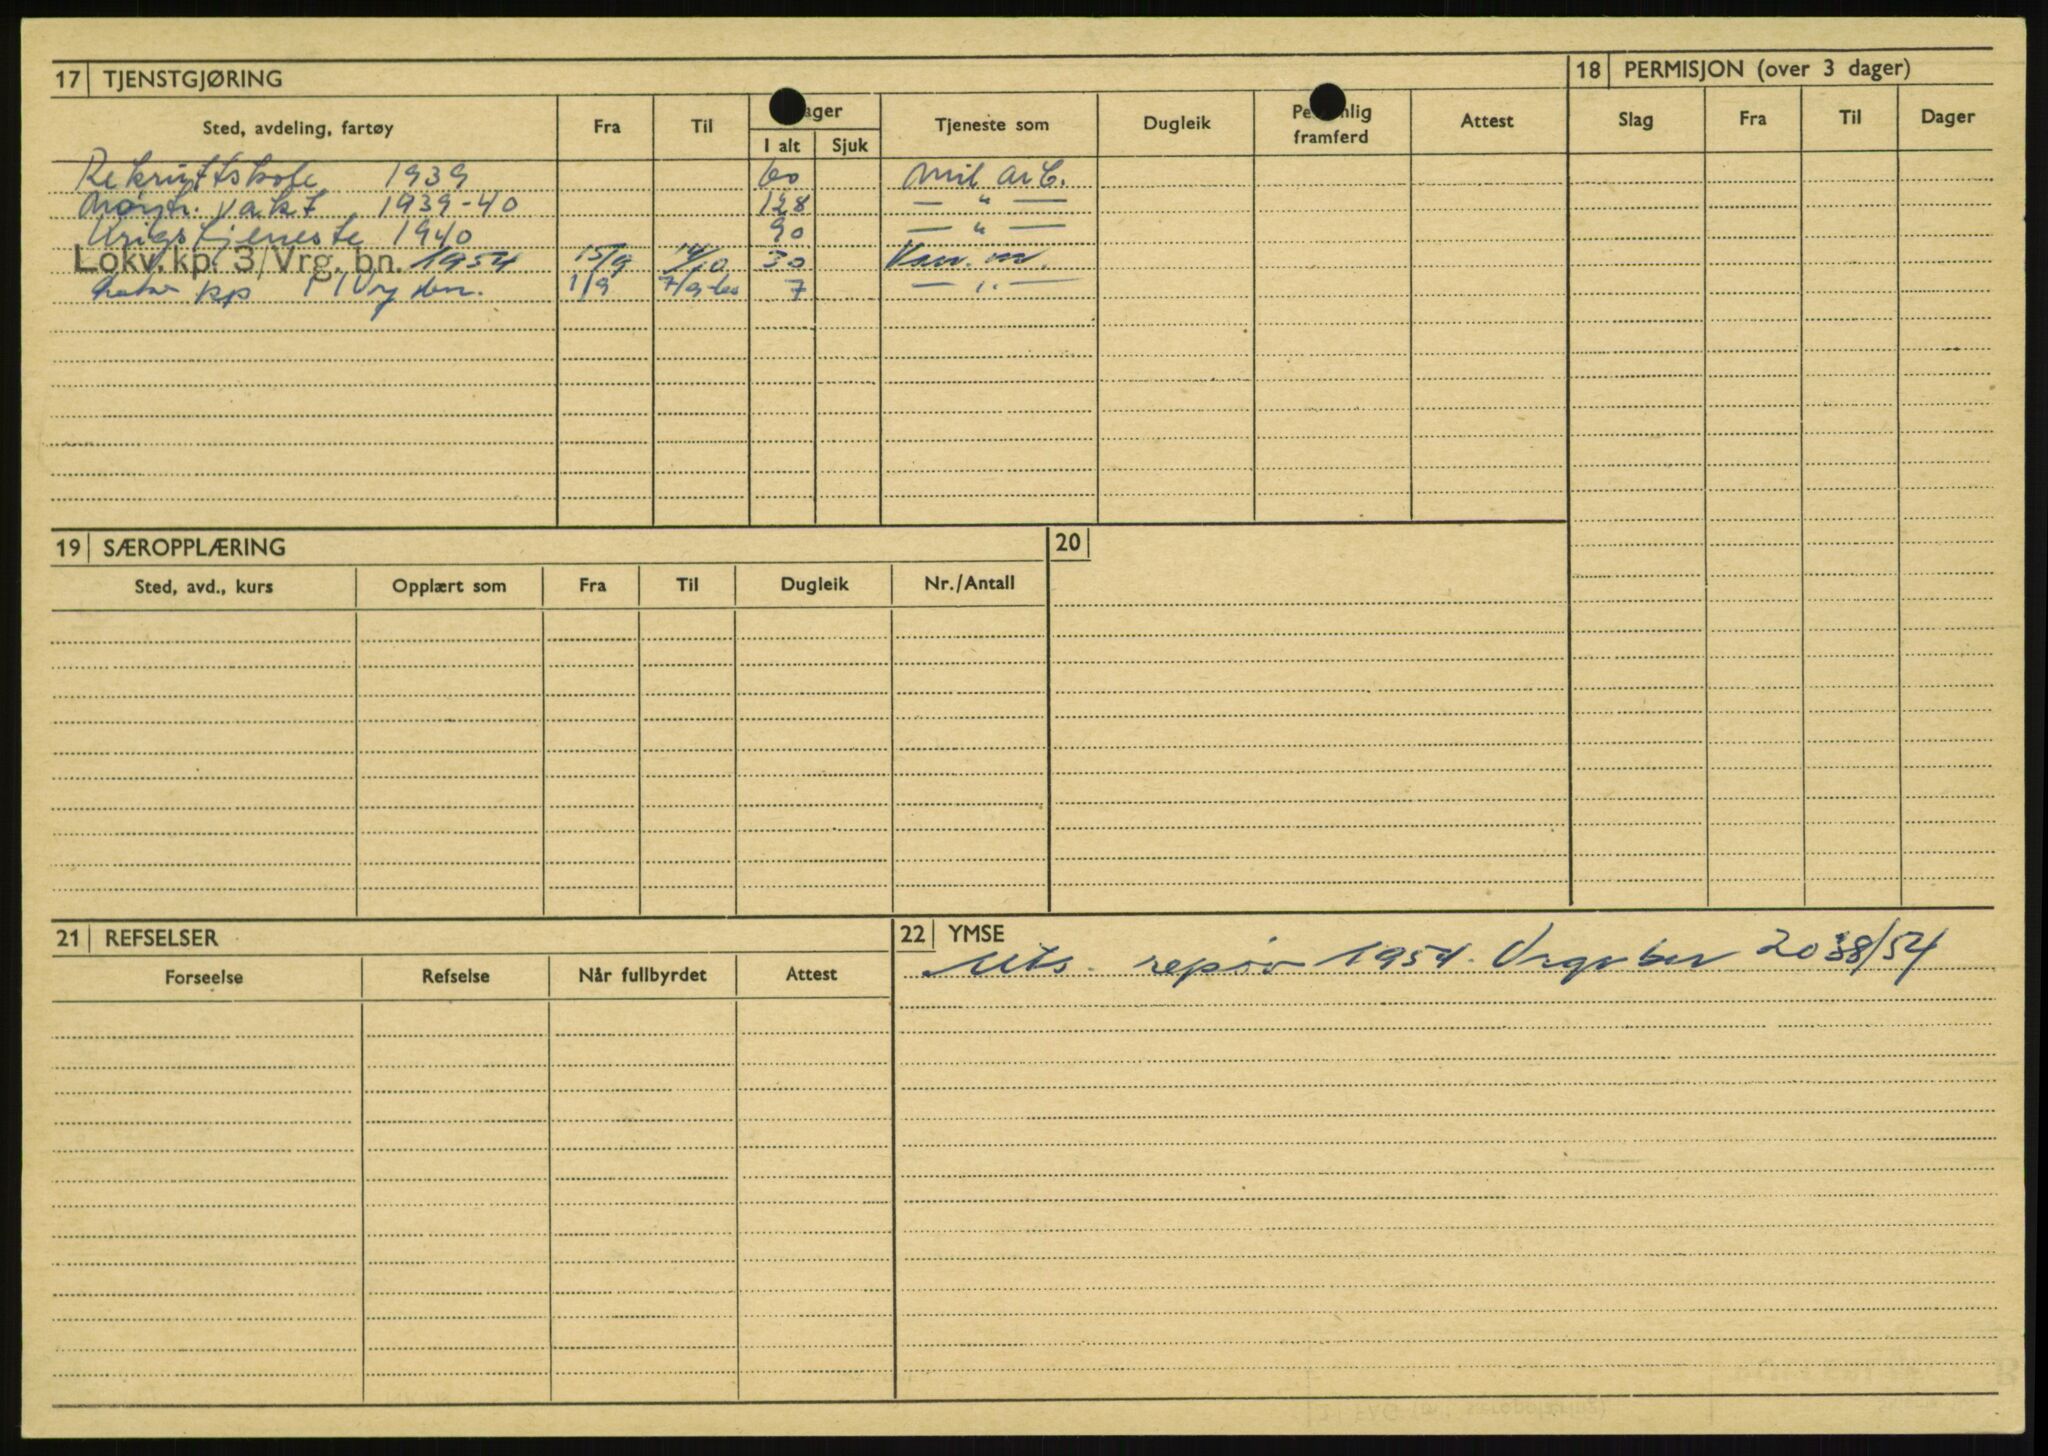 17 TJENSTGJØRING
Sted, avdeling, fartøy Fra Til ager I alt Sjuk Tjeneste som Dugleik Pe nlig framferd Attest
Rekruttskole 1939 60 Mil arb.
Nøytr. vakt 1939-40 128 — " —
Krigstjeneste 1940 90 — " —
Lokv. kp. 3/Vrg. bn. 1954 15/9 14/10 30 Kan. m.
kp 1/9 7/9-60 7 — " —
18 PERMISJON (over 3 dager)
Slag Fra Til Dager
19 SÆROPPLÆRING
Sted, avd., kurs Opplært som Fra Til Dugleik Nr./Antall
20
21 REFSELSER
Forseelse Refselse Når fullbyrdet Attest
22 YMSE
Uts. repøv 1954. 2038/54